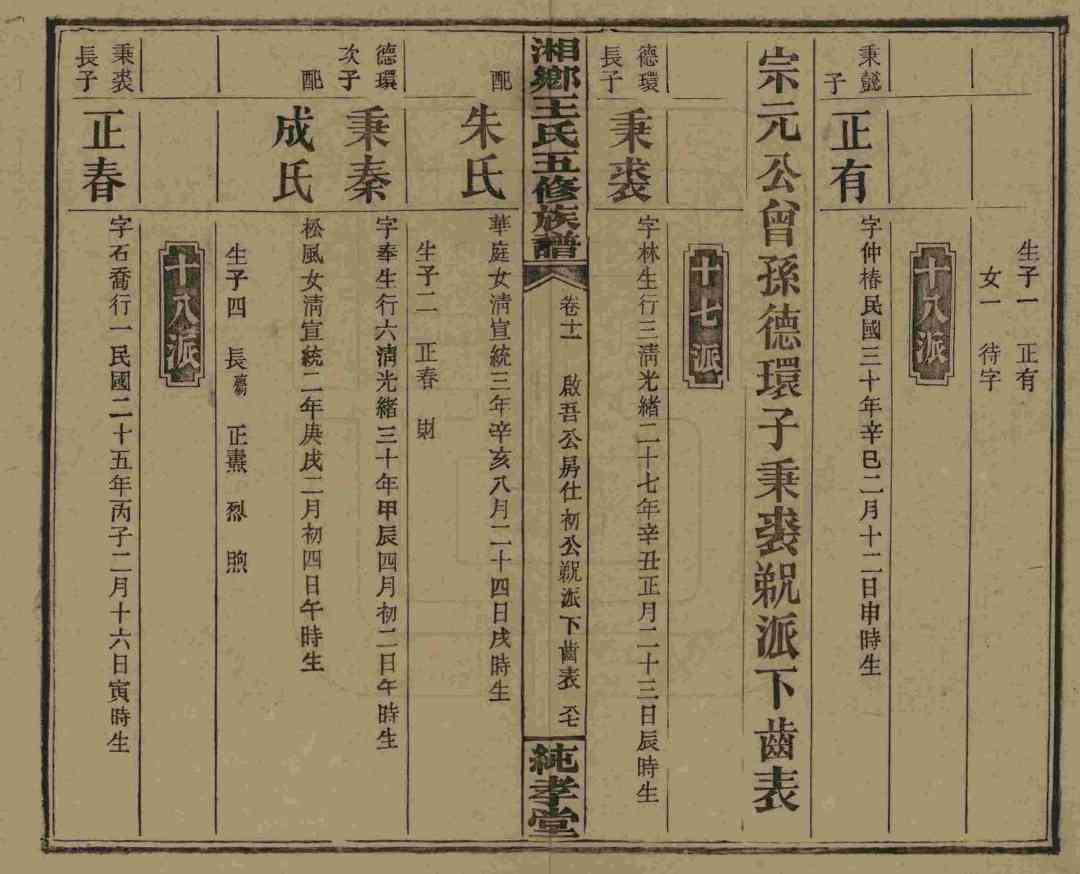 生子一 正有
女一 待字
十八派
秉㲄子 正有 字仲椿民國三十年辛巳二月十二日申時生
宗元公曾孫德環子秉裘派下齒表
十七派
德環長子 秉裘 字林生行三清光緒二十七年辛丑正月二十三日辰時生
湘鄉王氏五修族譜 卷十一 啟吾公房仕初公派下齒表 純孝堂
配 朱氏 華庭女清宣統三年辛亥八月二十四日戌時生
生子二 正春 則
德環次子 秉秦 字奉生行六清光緒三十年甲辰四月初二日午時生
配 成氏 松風女清宣統二年庚戌二月初四日午時生
生子四 長 正燾 烈 煦
十八派
秉裘長子 正春 字石喬行一民國二十五年丙子二月十六日寅時生